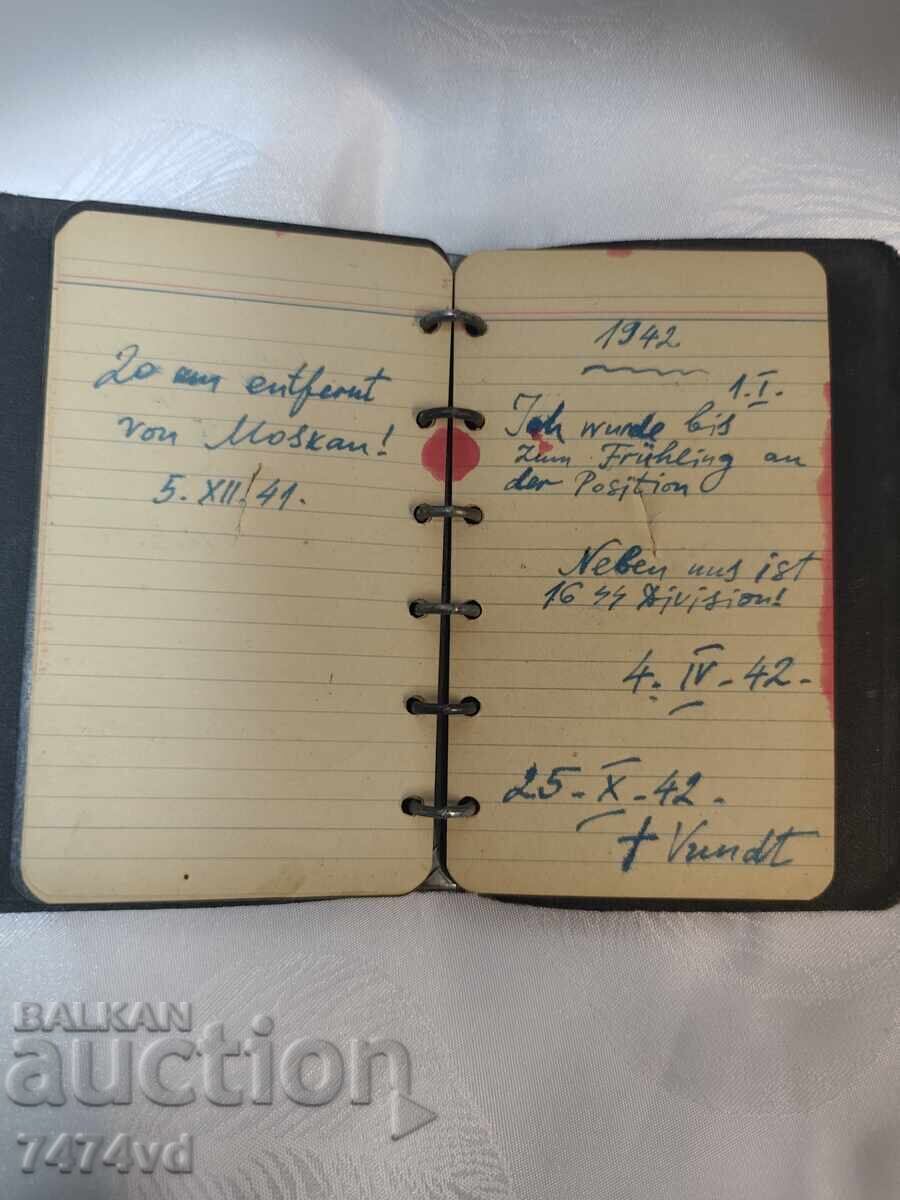 20 km entfernt
von Moskau!
5. XII. 41.
1942
1. I.
Ich wurde bis
zum Frühling an
der Position
Neben uns ist
16 SS Division!
4. IV - 42 -
25 - X - 42 -
† Vundt
BALKAN
auction
7474vd